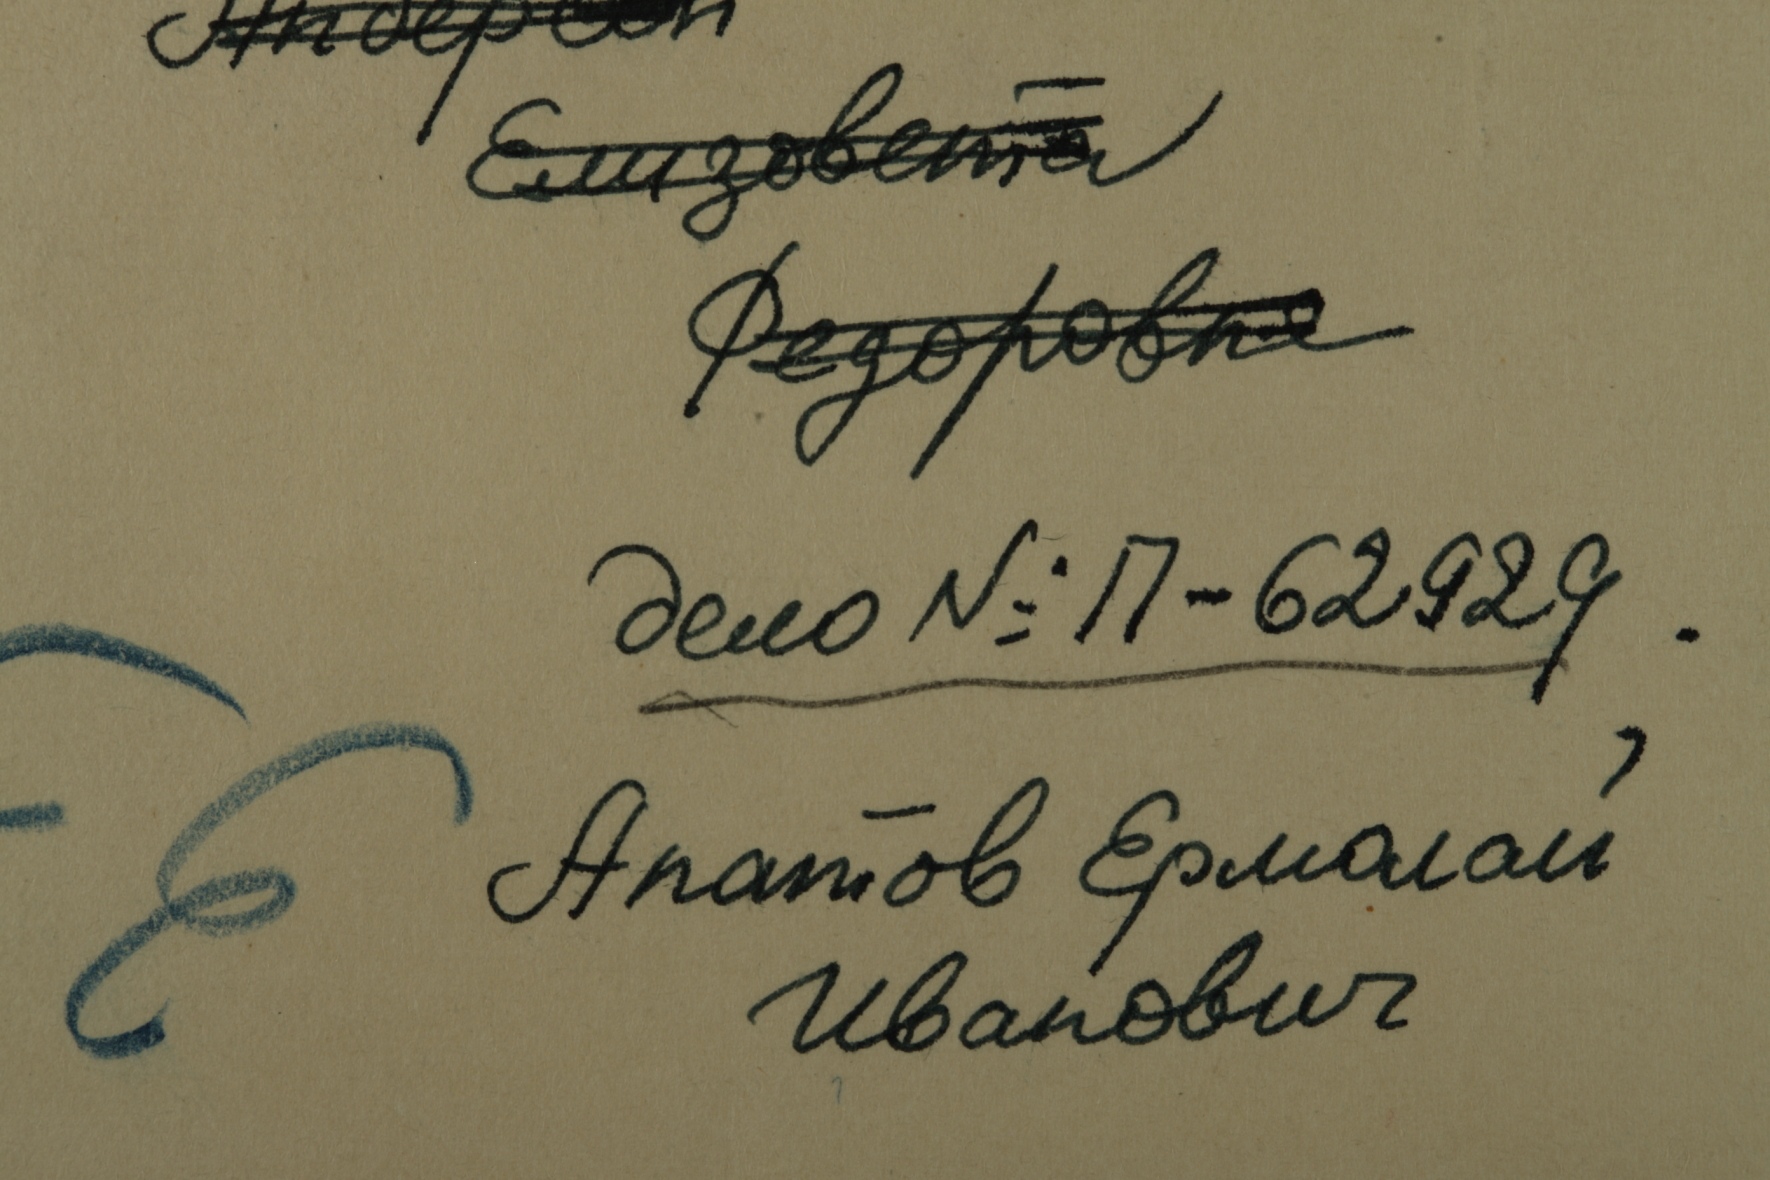 Андерсон
Елизовета
Федоровна
дело №: П-62929.
Апатов Ермолай
Иванович